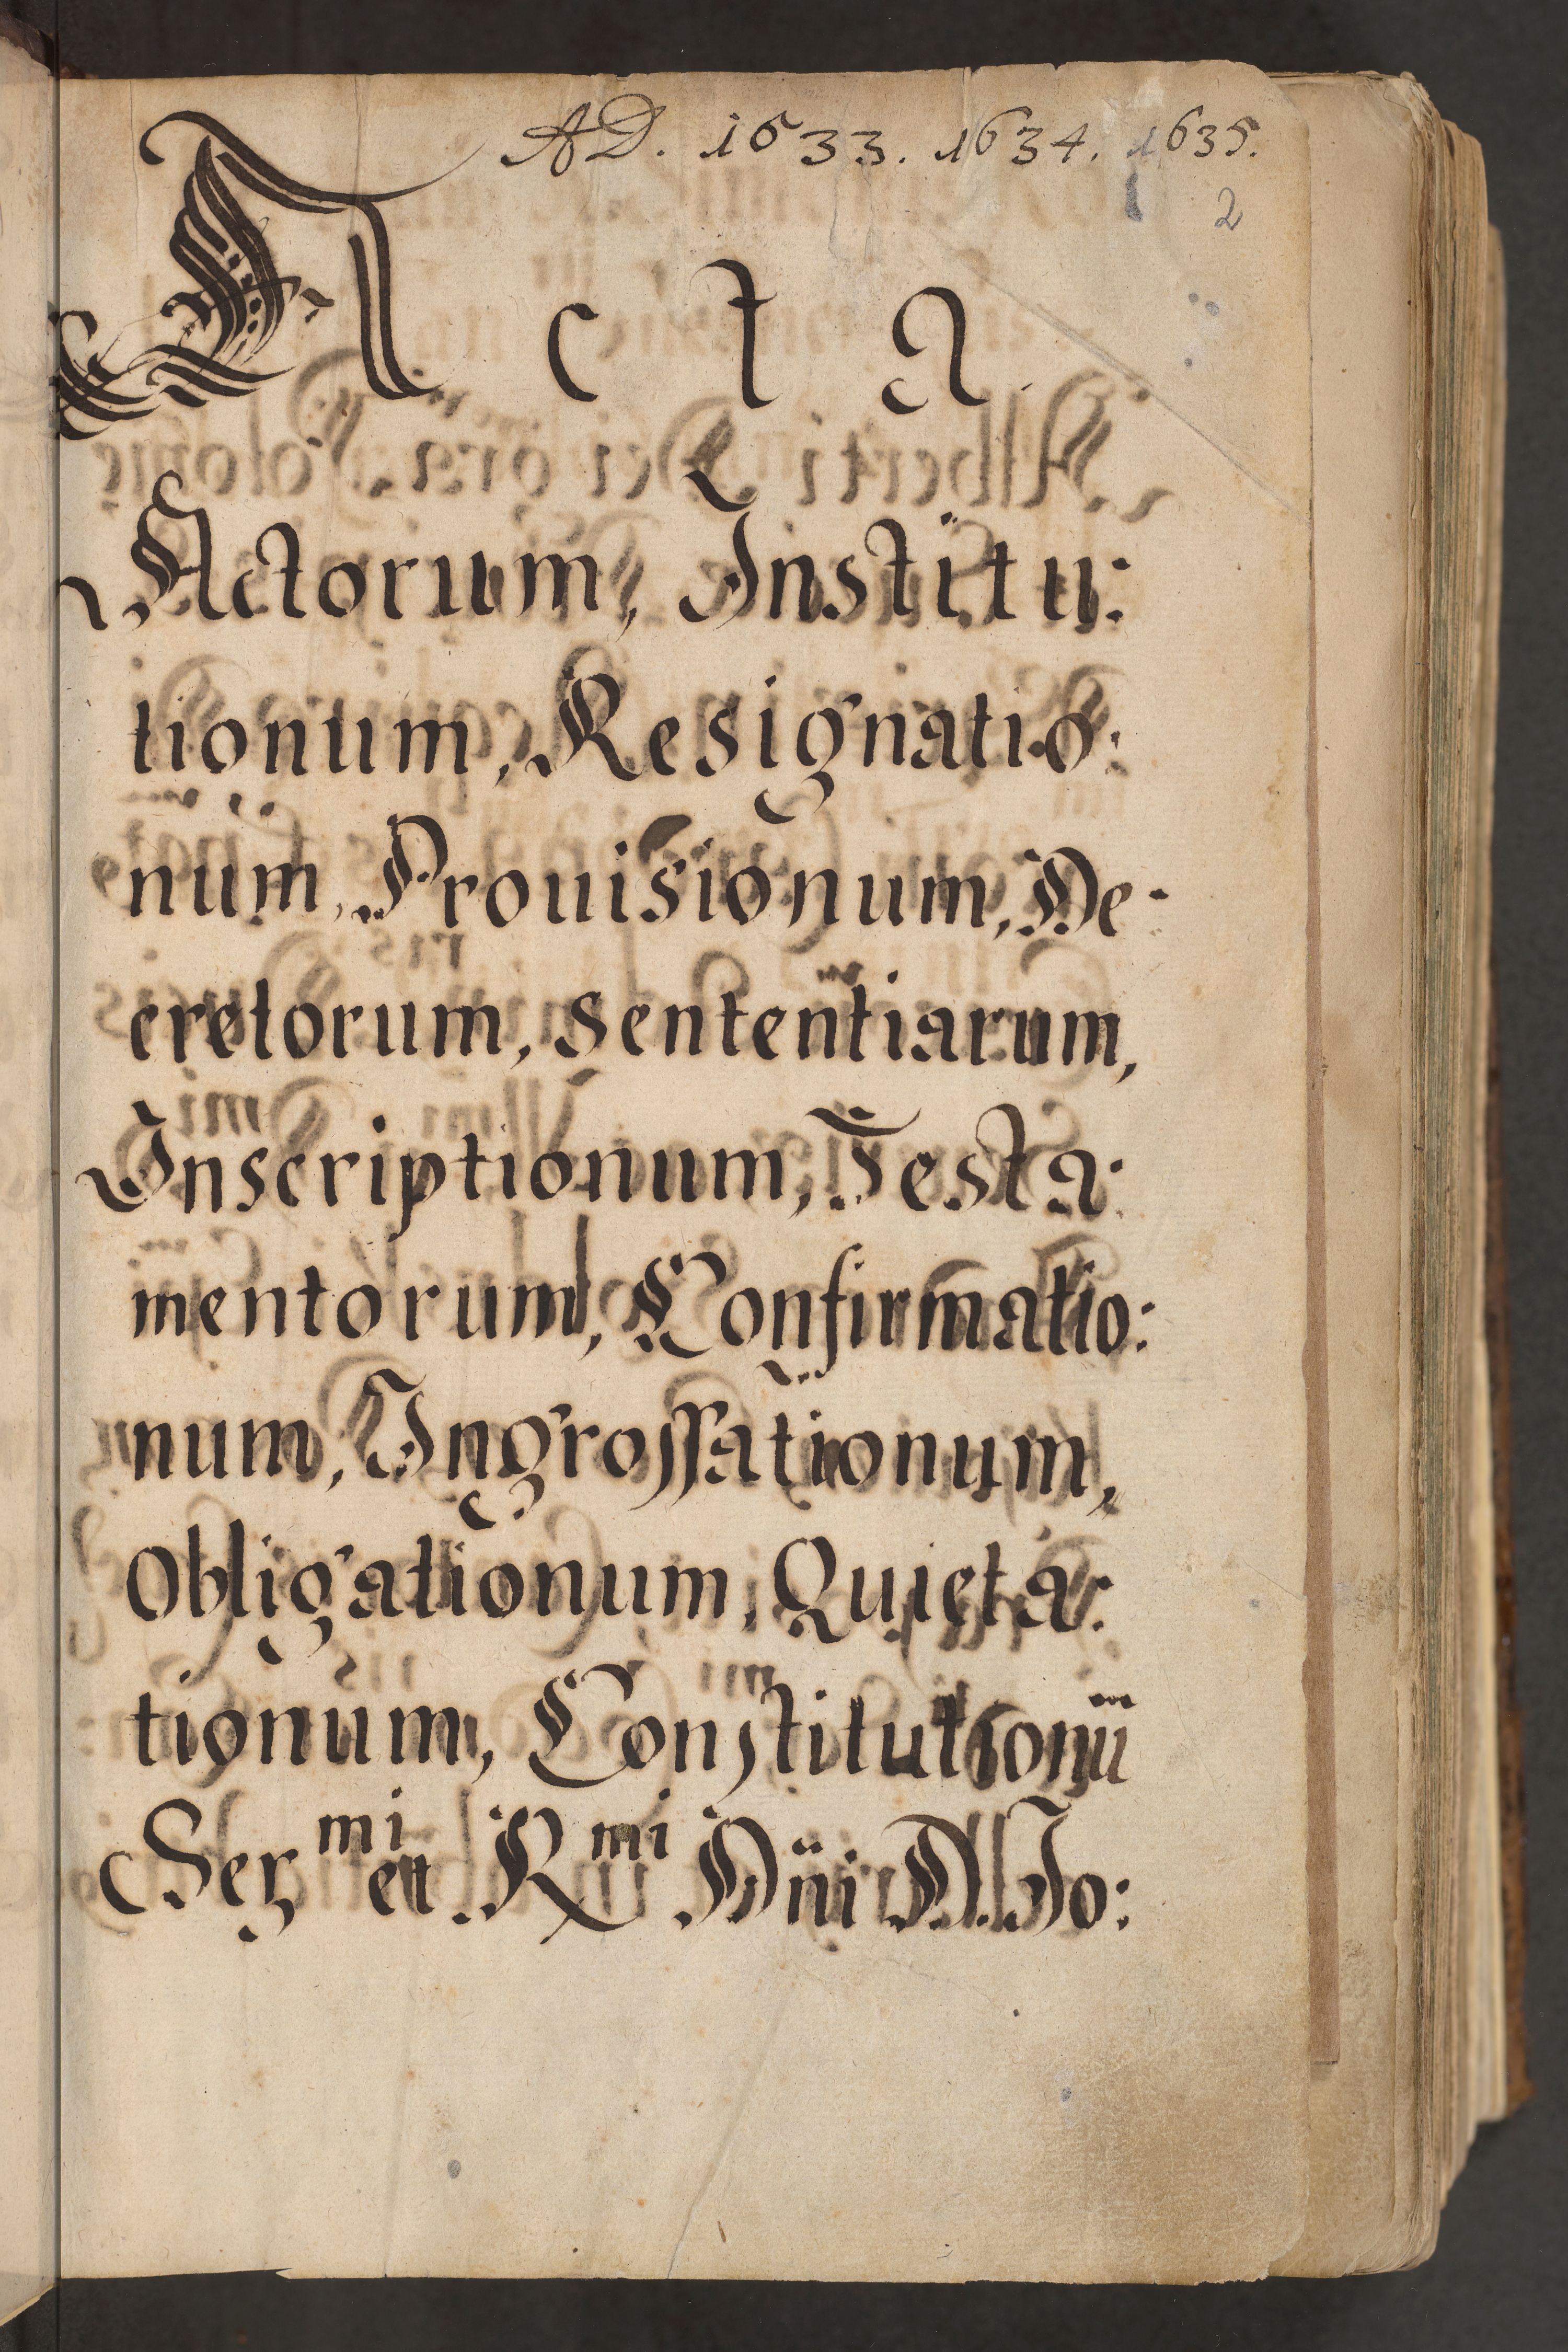 AD. 1633. 1634. 1635.
2
Acta
Actorum, Institu:
tionum, Resignatio:
num, Prouisionum, De:
cretorum, Sententiarum,
Inscriptionum, Testa:
mentorum, Confirmatio:
num, Ingrossationum,
Obligationum, Quieta:
tionum, Constitutionū
Sermi et Rmi Dni D. Jo: